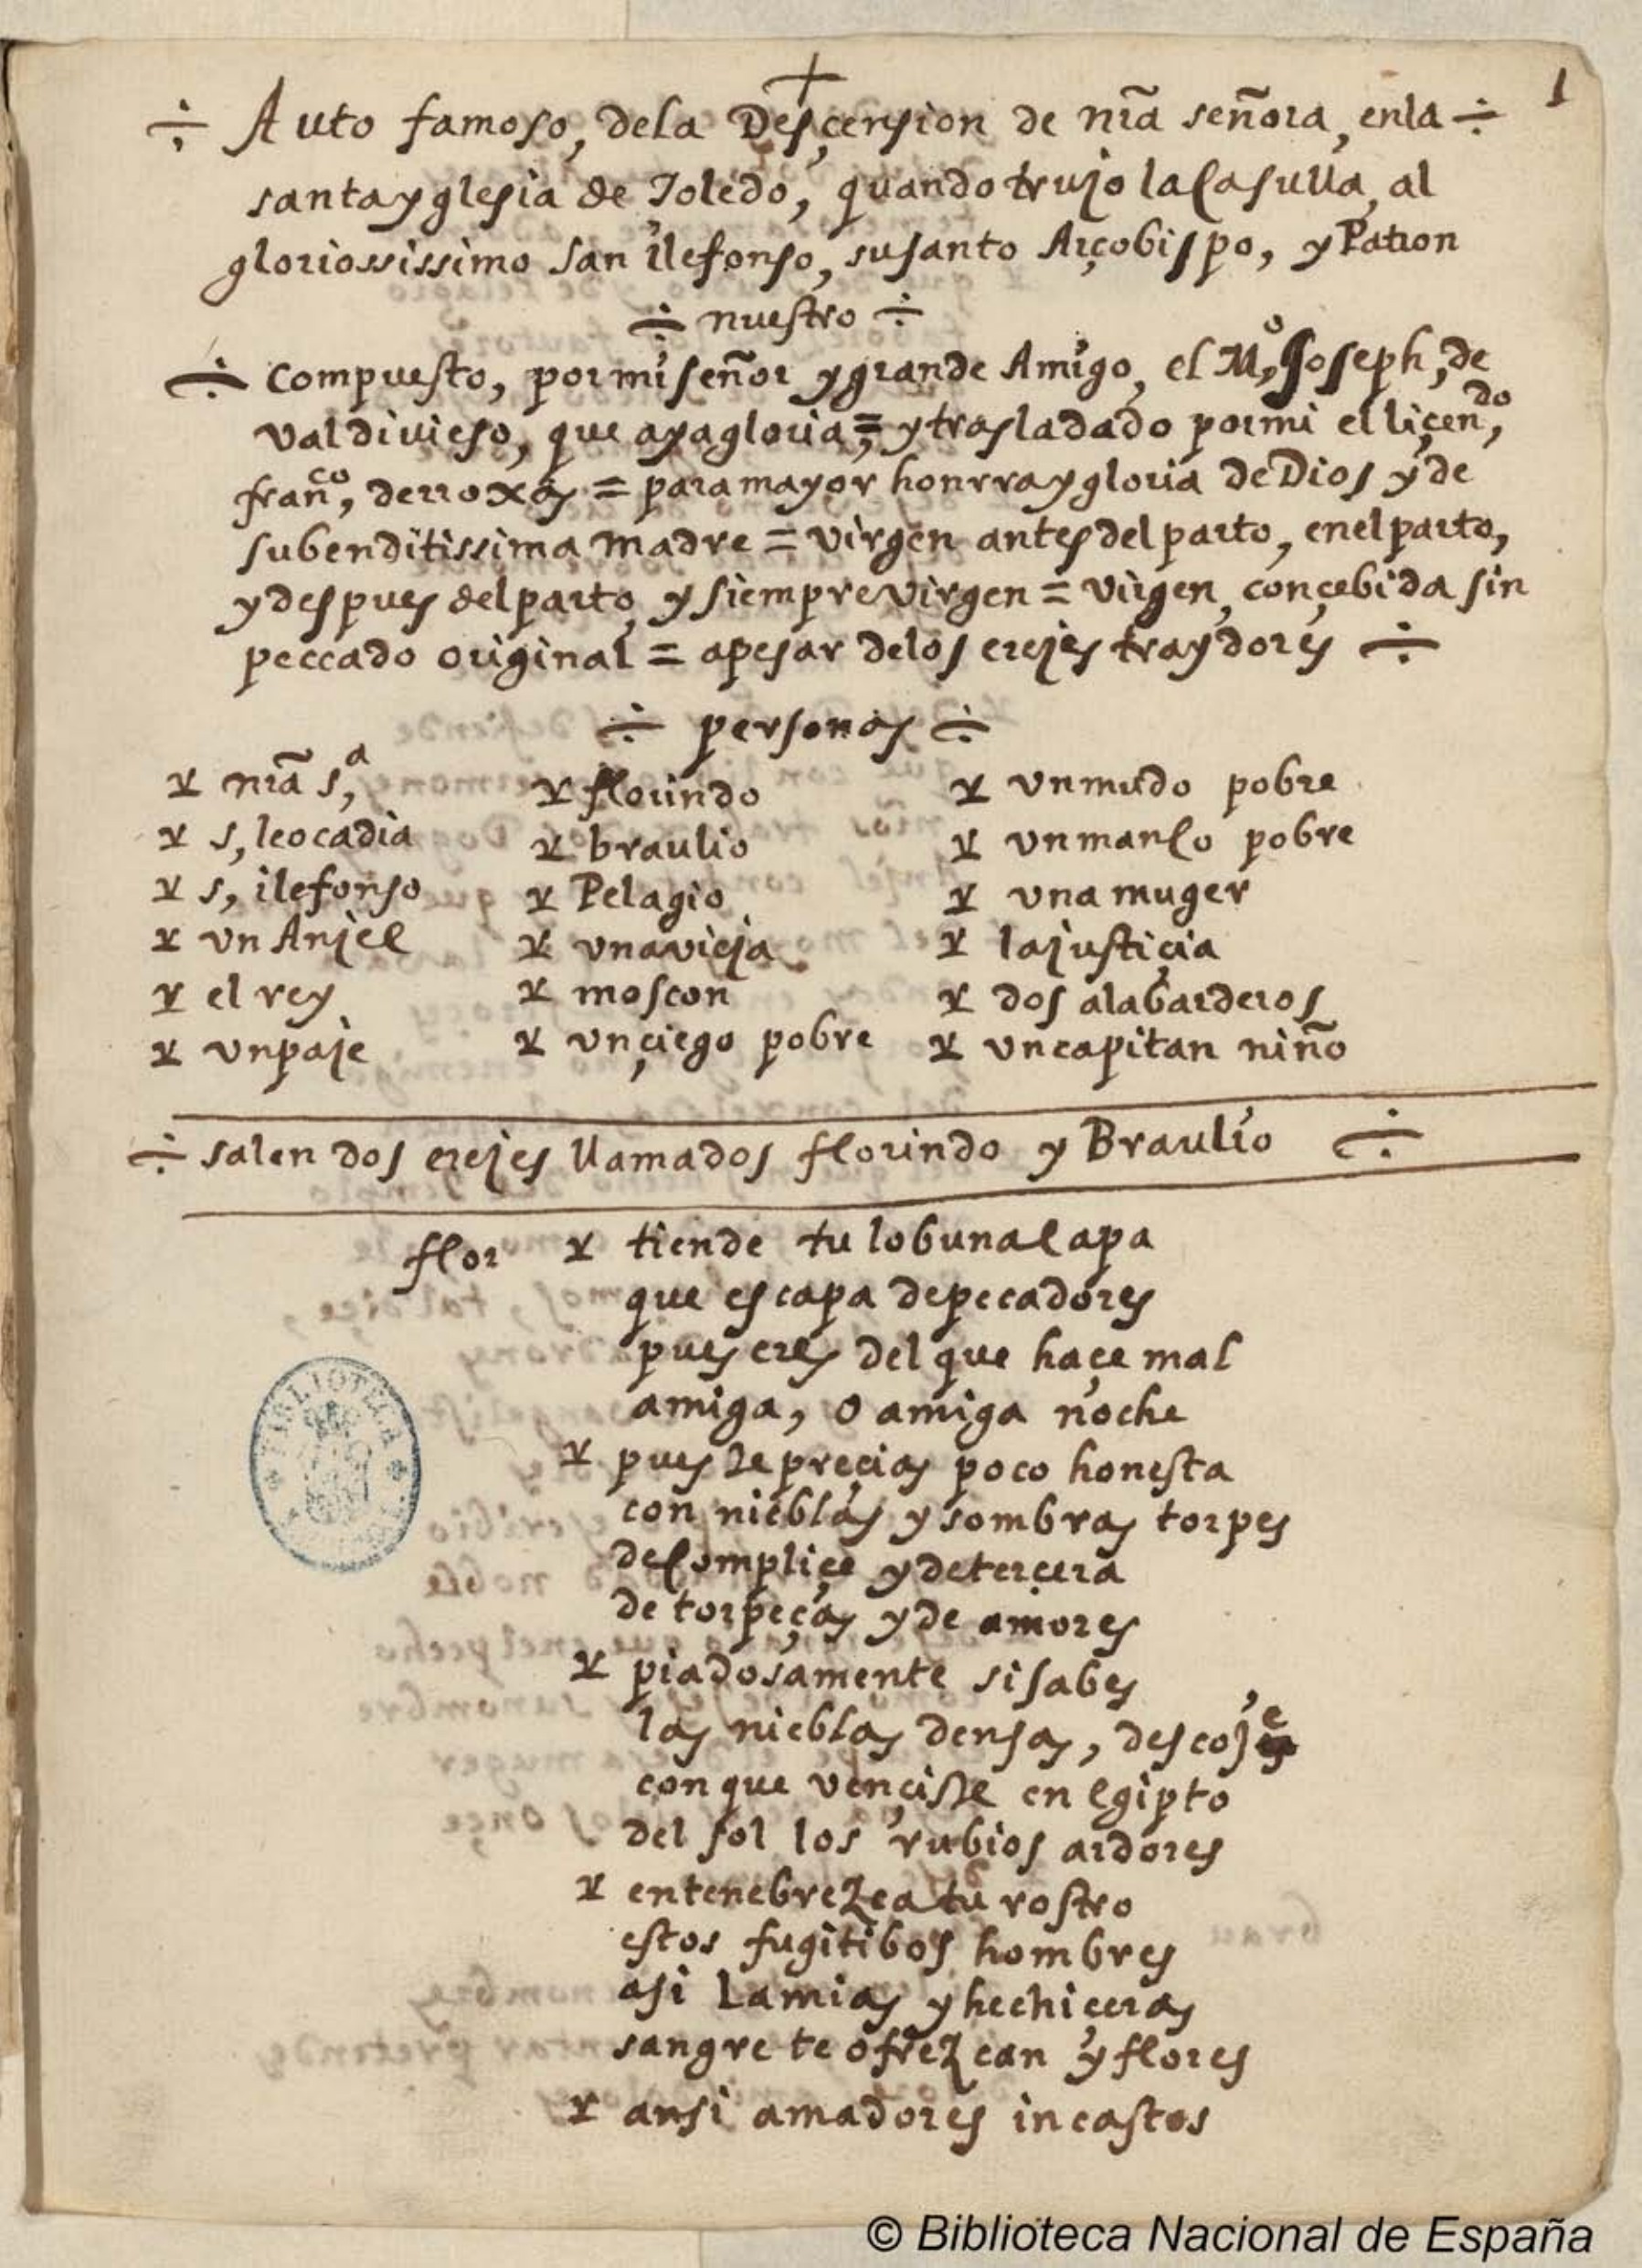 1
÷ Auto famoso, dela Desçension de nr̃a señora, enla ÷
santa yglesia de Toledo, quando trujo la Casulla, al
gloriossissimo San ilefonso, su santo Arçobispo, y Patron
÷ nuestro ÷
÷ compuesto, por mi señor y grande Amigo, el Mº, Joseph, de
valdivieso, que aya gloria = y trasladado por mi el liçen^do,
fran^co, de rroxas = para mayor honrra y gloria de Dios y de
su benditissima madre = virgen antes del parto, en el parto,
y despues del parto, y siempre virgen = virgen, conçebida sin
peccado original = apesar delos erejes traydores ÷
÷ personas ÷
nr̃a s^a,
s, leocadia
s, ilefonso
un Anjel
el rey
un paje
florindo
braulio
Pelagio
una vieja
moscon
un çiego pobre
un mudo pobre
un manco pobre
una muger
la justiçia
dos alabarderos
un capitan niño
÷ salen dos erejes llamados florindo y Braulio ÷
flor tiende tu lobuna capa
que es capa de pecadores
pues eres del que haçe mal
amiga, o amiga noche
pues te preçias poco honesta
con nieblas y sombras torpes
de Compliçe y de terçera
de torpeças y de amores
piadosamente si sabes
las nieblas densas, descoje
con que vençiste en egipto
del sol los rubios ardores
entenebrezca tu rostro
estos fugitibos hombres
asi Lamias y hechiçeras
sangre te ofrezcan y flores
ansi amadores incastos
© Biblioteca Nacional de España